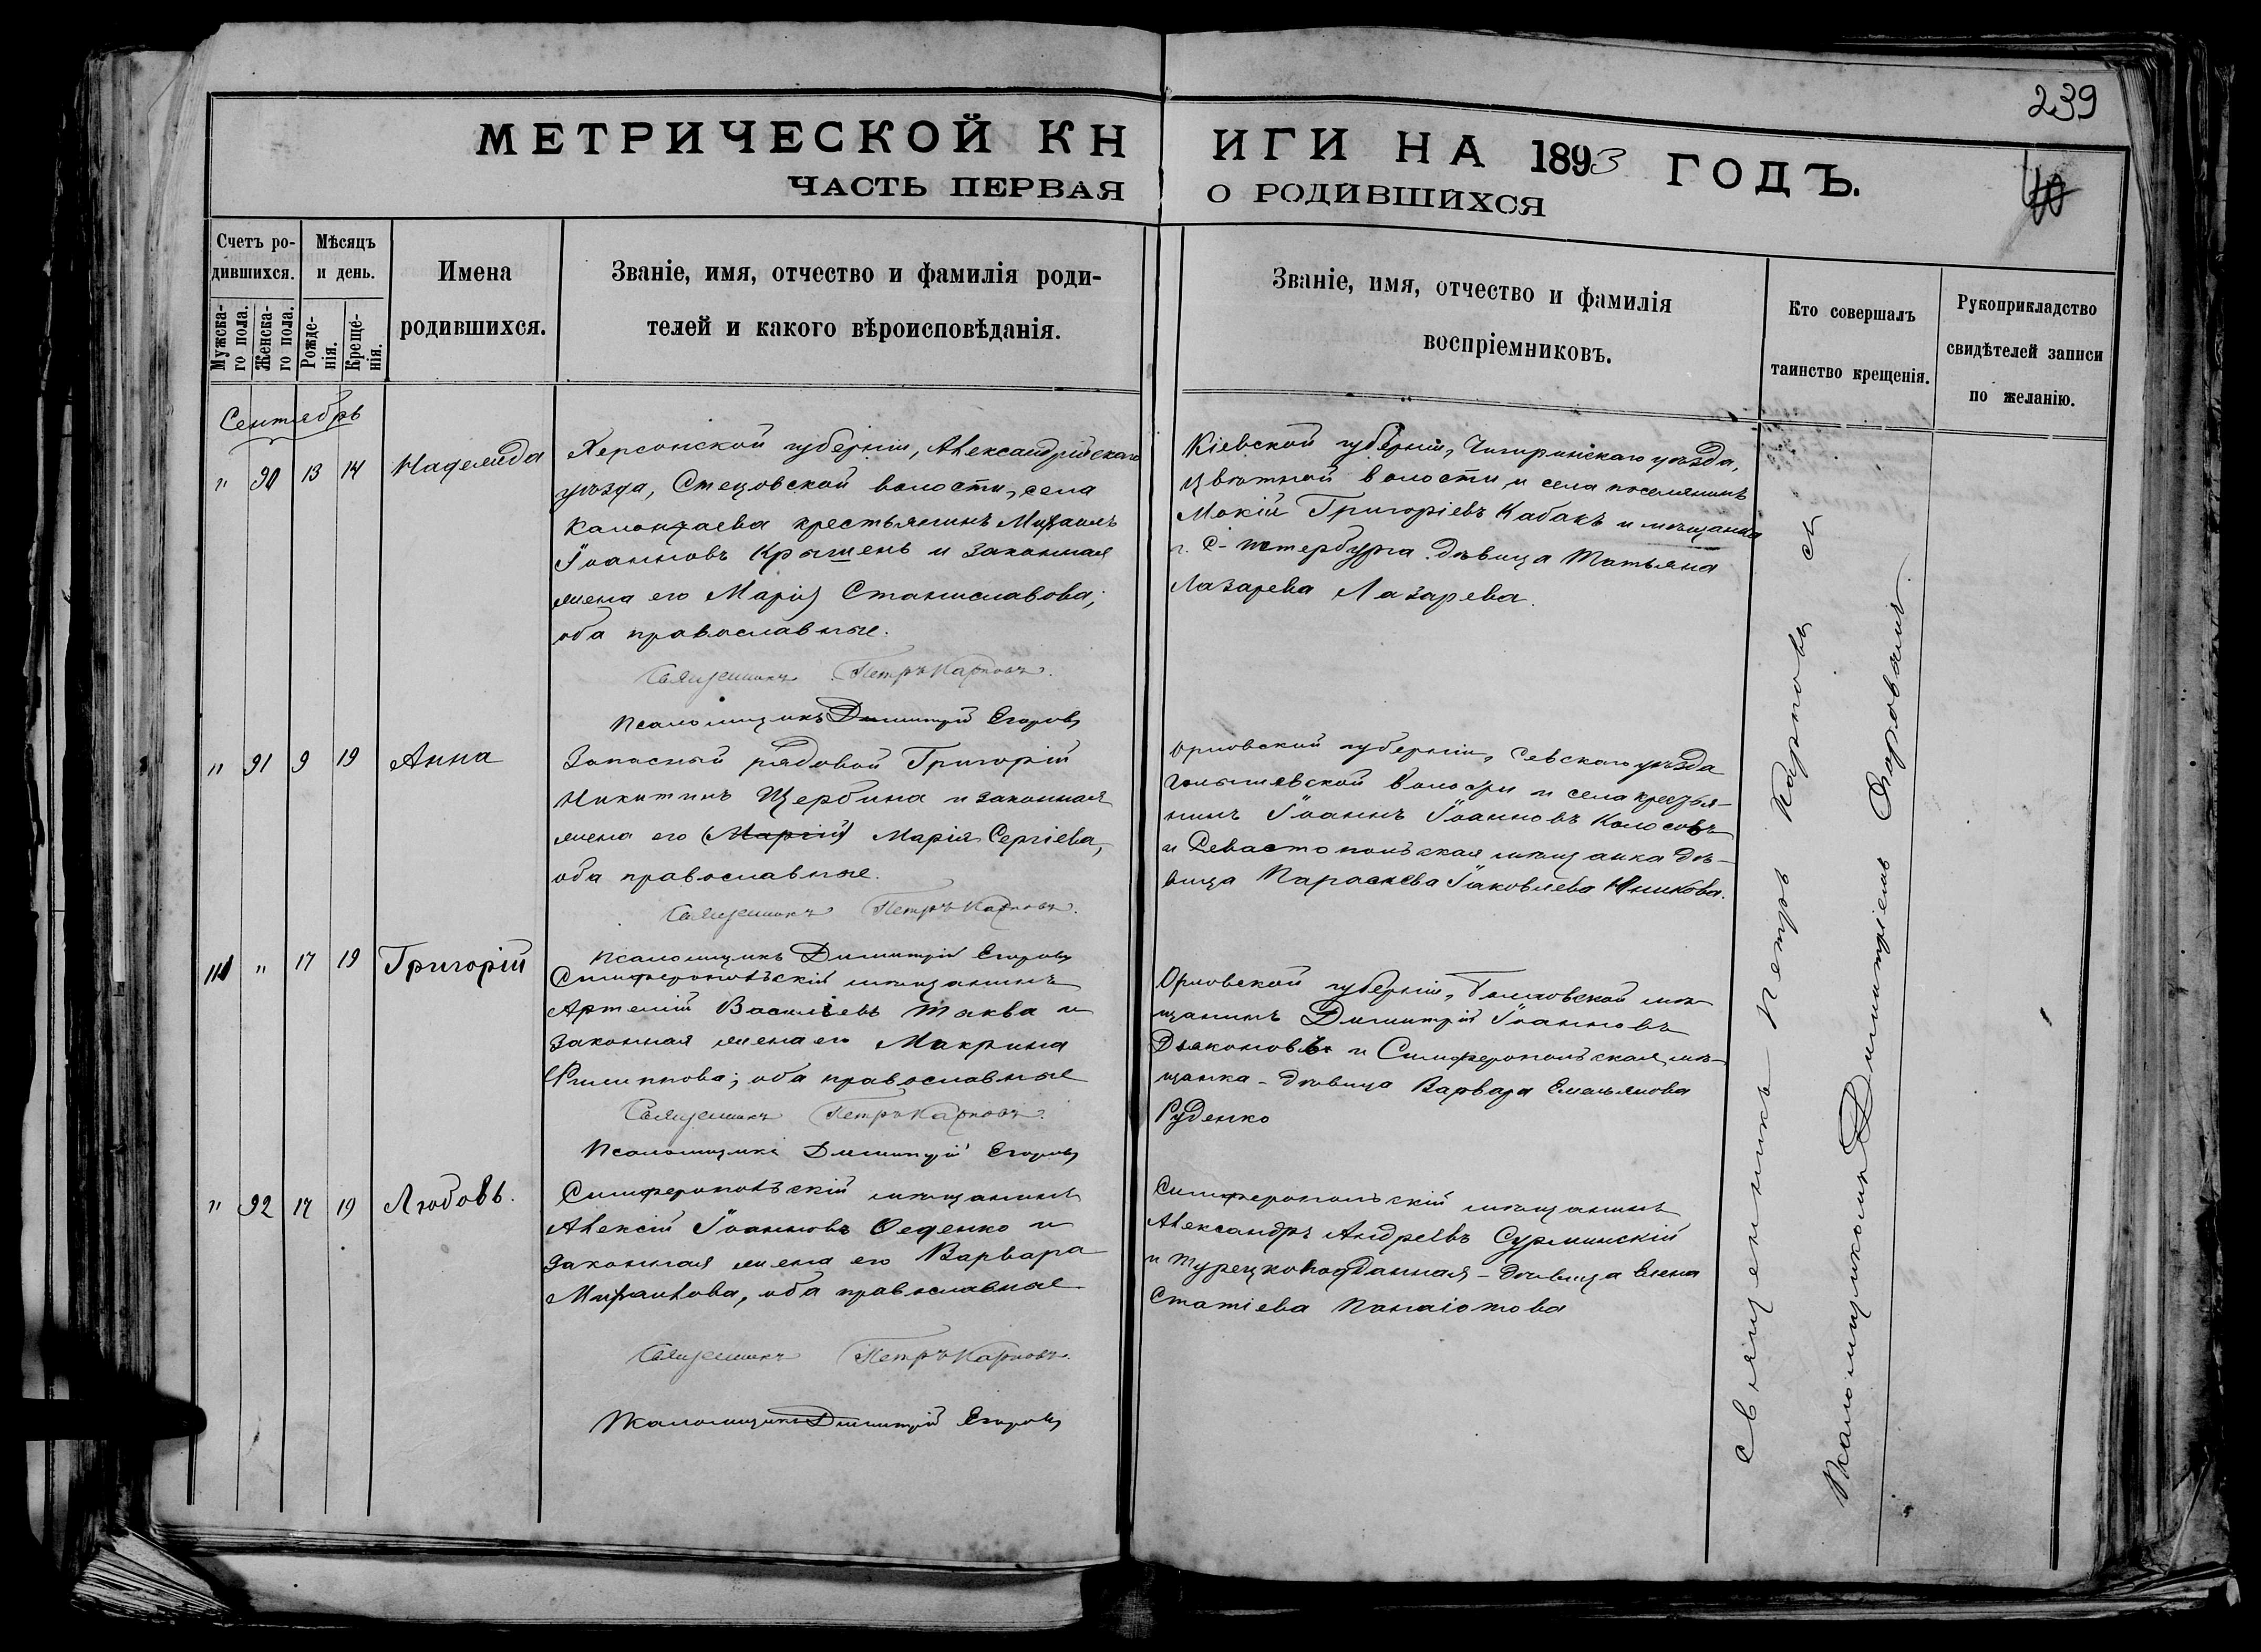 239
МЕТРИЧЕСКОЙ КНИГИ НА 1893 ГОДЪ.
ЧАСТЬ ПЕРВАЯ О РОДИВШИХСЯ
40
Счетъ ро-
дившихся.
Мужска-
го пола.
Женска-
го пола.
Мѣсяцъ
и день.
Рожде-
нія.
Креще-
нія.
Имена
родившихся.
Званіе, имя, отчество и фамилія роди-
телей и какого вѣроисповѣданія.
Званіе, имя, отчество и фамилія
воспріемниковъ.
Кто совершалъ
таинство крещенія.
Рукоприкладство
свидѣтелей записи
по желанію.
Сентябрь
" 90 13 14 Надежда
Херсонской губерніи, Александрійскаго
уѣзда, Стецовской волости, села
Калантаева крестьянинъ Михаилъ
Іоанновъ Крышень и законная
жена его Марія Станиславова;
оба православные.
Священникъ Петръ Карповъ.
Псаломщикъ Димитрій Егоровъ
Кіевской губерніи, Чигиринскаго уѣзда,
Цвѣтной волости и села поселянинъ
Мокій Григоріевъ Кабакъ и мѣщанка
г. С-петербурга дѣвица Татьяна
Лазарева Лазарева.
" 91 9 19 Анна
Запасный рядовой Григорій
Никитинъ Щербина и законная
жена его (Марія) Марія Сергіева,
оба православные.
Священникъ Петръ Карповъ.
Псаломщикъ Димитрій Егоровъ
Орловской губерніи, Севскаго уѣзда
волости и села крестья-
нинъ Іоаннъ Іоанновъ Колосовъ
и Севастопольская мѣщанка дѣ-
вица Параскева Іаковлева
111 " 17 19 Григорій
Симферопольскій мѣщанинъ
Артемій Василіевъ Таква и
законная жена его Макрина
Филиппова; оба православные
Священникъ Петръ Карповъ.
Псаломщикъ Димитрій Егоровъ
Орловской губерніи, мѣ-
щанинъ Димитрій Іоанновъ
Дьяконовъ и Симферопольская мѣ-
щанка - дѣвица Варвара Емельянова
Руденко
" 92 17 19 Любовь.
Симферопольскій мѣщанинъ
Алексій Іоанновъ Феденко и
законная жена его Варвара
Михаилова, оба православные
Священникъ Петръ Карповъ.
Псаломщикъ Димитрій Егоровъ
Симферопольскій мѣщанинъ
Александръ Андреевъ Сурминскій
и турецкоподданная - дѣвица Елена
Статіева Панаіотова
Священникъ Петръ Карповъ съ
Псаломщикомъ Димитріемъ Егоровымъ.